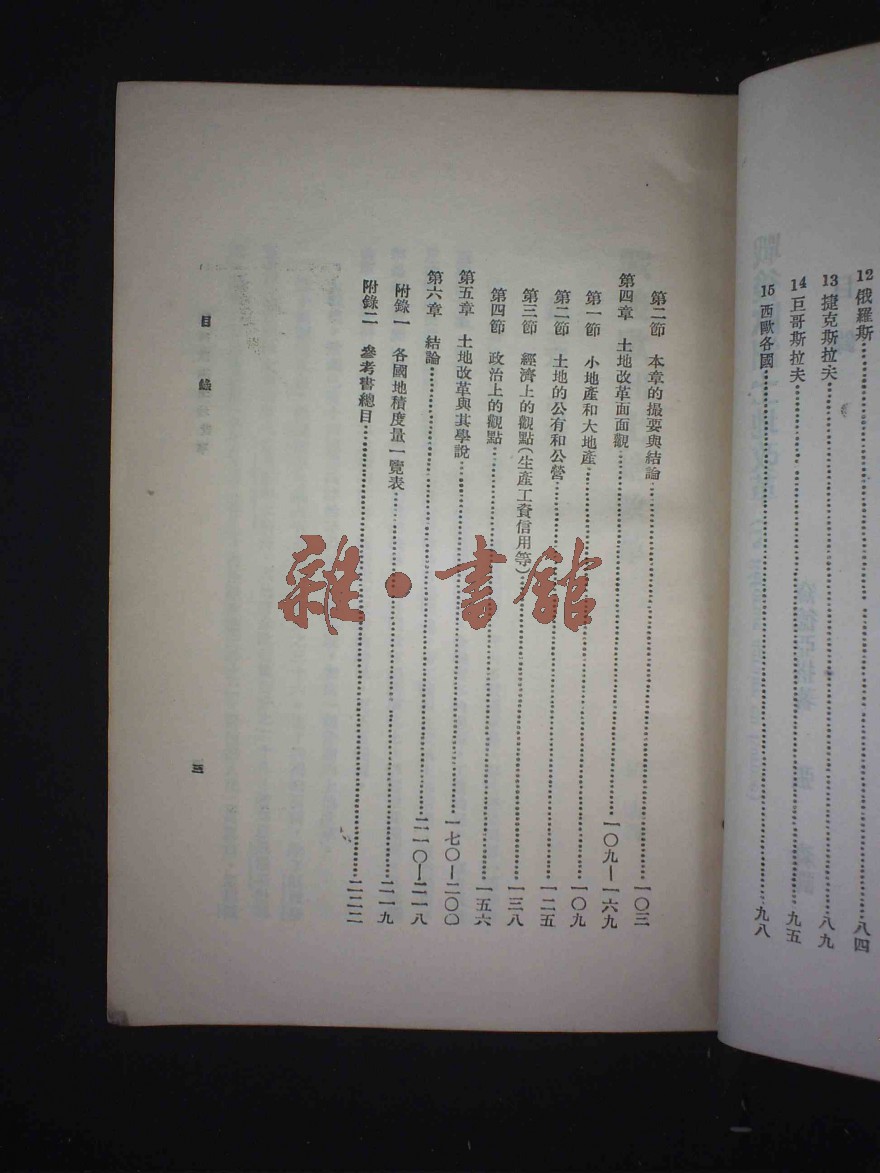 12 俄羅斯……八四
13 捷克斯拉夫……八九
14 巨哥斯拉夫……九五
15 西歐各國……九八
第二節 本章的撮要與結論……一〇三
第四章 土地改革面面觀……一〇九—一六九
第一節 小地產和大地產……一〇九
第二節 土地的公有和公營……一二五
第三節 經濟上的觀點(生產工資信用等)……一三八
第四節 政治上的觀點……一五六
第五章 土地改革與其學說……一七〇—二〇〇
第六章 結論……二一〇—二一八
附錄一 各國地積度量一覽表……二一九
附錄二 參考書總目……二二二
目錄
三
雜·書館